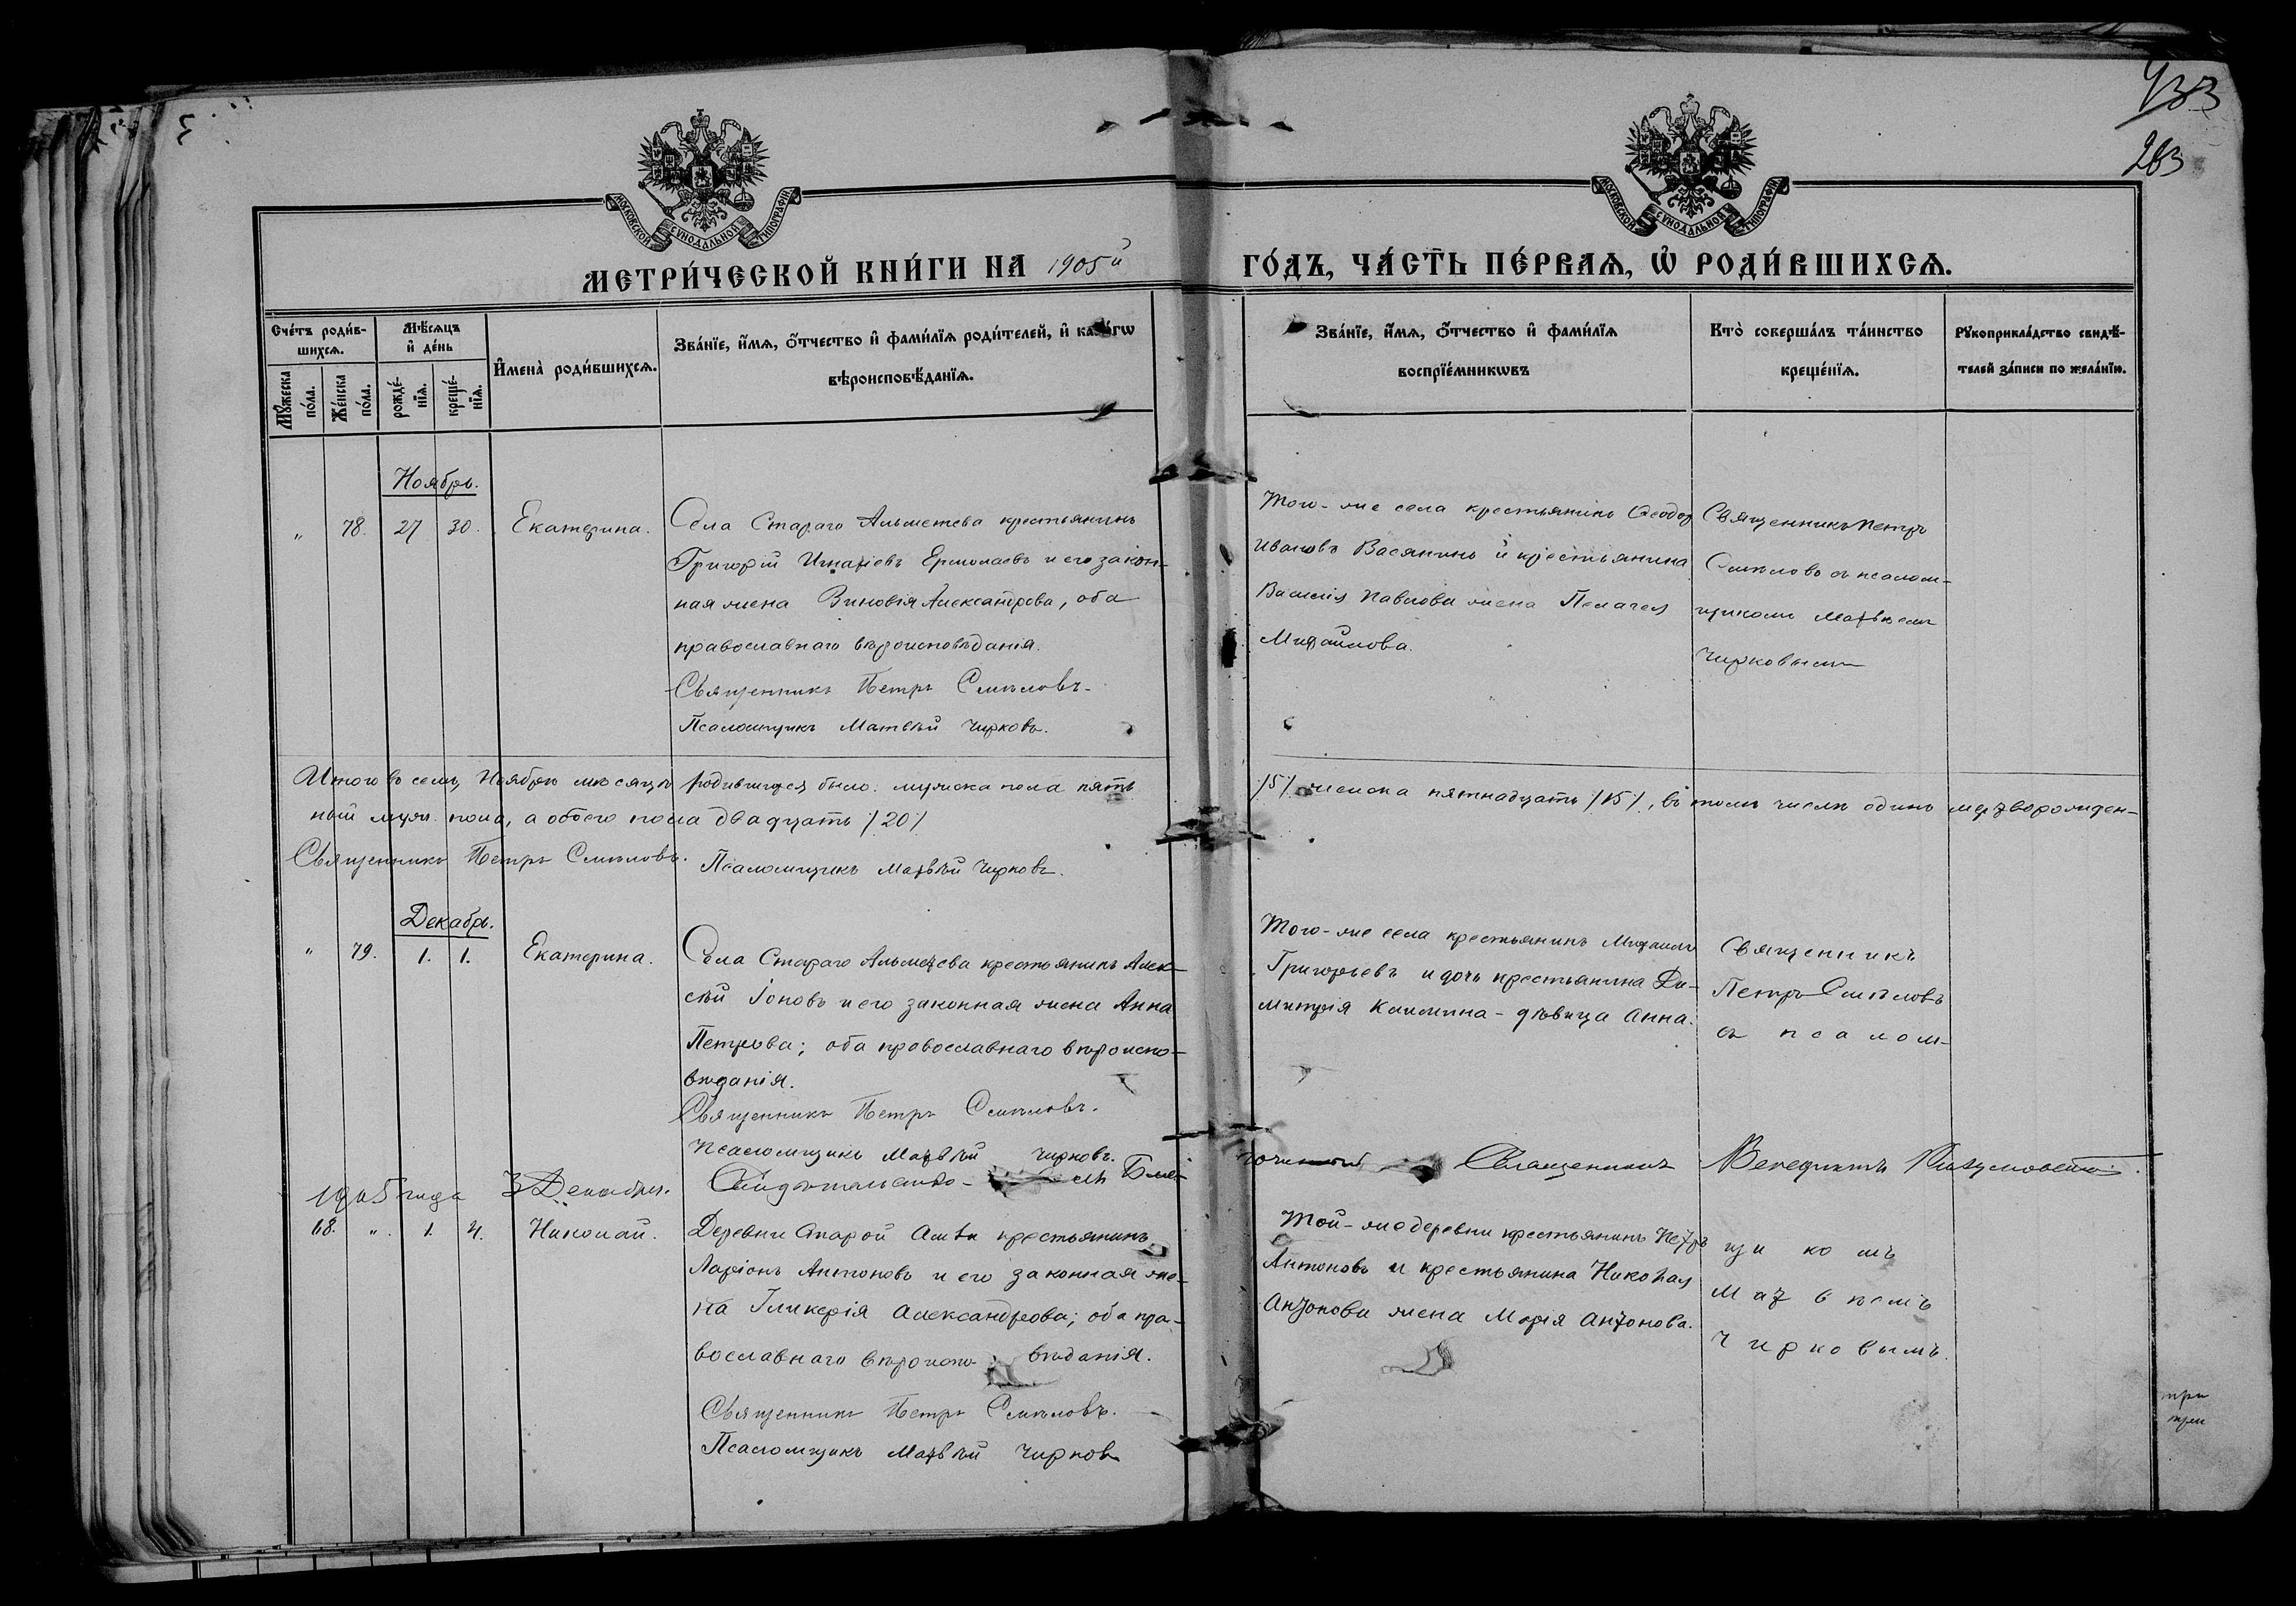 433
283
МОСКОВСКОЙ СѴНОДАЛЬНОЙ ТИПОГРАФІИ
МОСКОВСКОЙ СѴНОДАЛЬНОЙ ТИПОГРАФІИ
МЕТРИ́ЧЕСКОЙ КНИ́ГИ НА 1905й ГО́ДЪ, ЧА́СТЬ ПЕ́РВАѦ, Ѡ҆ РОДИ́ВШИХСѦ.
Сче́тъ роди́в-
шихсѧ.
Мѣ́сѧцъ
и҆ де́нь
И҆мена̀ роди́вшихсѧ.
Зва́нїе, и҆́мѧ, ѻ҆́тчество и҆ фами́лїѧ роди́телей, и҆ како́гѡ
вѣроисповѣ́данїѧ.
Зва́нїе, и҆́мѧ, ѻ҆́тчество и҆ фами́лїѧ
воспрїе́мникѡвъ
Кто̀ соверша́лъ та́инство
креще́нїѧ.
Рꙋкоприкла́дство свидѣ́-
телей за́писи по жела́нїю.
Мꙋ́жеска
по́ла.
Же́нска
по́ла.
рожде́-
нїѧ.
креще́-
нїѧ.
Ноябрь.
" 78. 27 30. Екатерина.
Села Стараго Альметева крестьянинъ
Григорій Игнатіевъ Ермолаевъ и его закон-
ная жена Зиновія Александрова, оба
православнаго вѣроисповѣданія.
Священникъ Петръ Смѣловъ.
Псаломщикъ Матвѣй Чирковъ.
Того-же села крестьянинъ Ѳеодор
Ивановъ Васянинъ и крестьянина
Василія Павлова жена Пелагея
Михайлова.
Священникъ Петръ
Смѣловъ съ псалом-
щикомъ Матвѣемъ
Чирковымъ
Итого въ семъ Ноябрѣ мѣсяцѣ родившихся было: мужска пола пять /5/ женска пятнадцать /15/, въ томъ числѣ одинъ мертворожден-
ный муж. пола, а обоего пола двадцать /20/
Священникъ Петръ Смѣловъ. Псаломщикъ Матвѣй Чирковъ.
Декабрь.
" 79. 1. 1. Екатерина.
Села Стараго Альметева крестьянинъ Алек-
сѣй Іоновъ и его законная жена Анна
Петрова; оба православнаго вѣроиспо-
вѣданія.
Священникъ Петръ Смѣловъ.
Псаломщикъ Матвѣй Чирковъ.
Того-же села крестьянинъ Михаилъ
Григорьевъ и дочь крестьянина Ди-
митрія Климина - дѣвица Анна.
Священникъ
Петръ Смѣловъ
съ псалом-
1905 года 3 Декабря. Священникъ Венедиктъ
68. " 1. 4. Николай.
Деревни Старой Амзи крестьянинъ
Ларіонъ Антоновъ и его законная же-
на Гликерія Александрова; оба пра-
вославнаго вѣроиспо- вѣданія.
Священникъ Петръ Смѣловъ.
Псаломщикъ Матвѣй Чирковъ
Той-же деревни крестьянинъ Петръ
Антоновъ и крестьянина Николая
Антонова жена Марія Антонова.
щикомъ
Матвѣемъ
Чирковымъ.